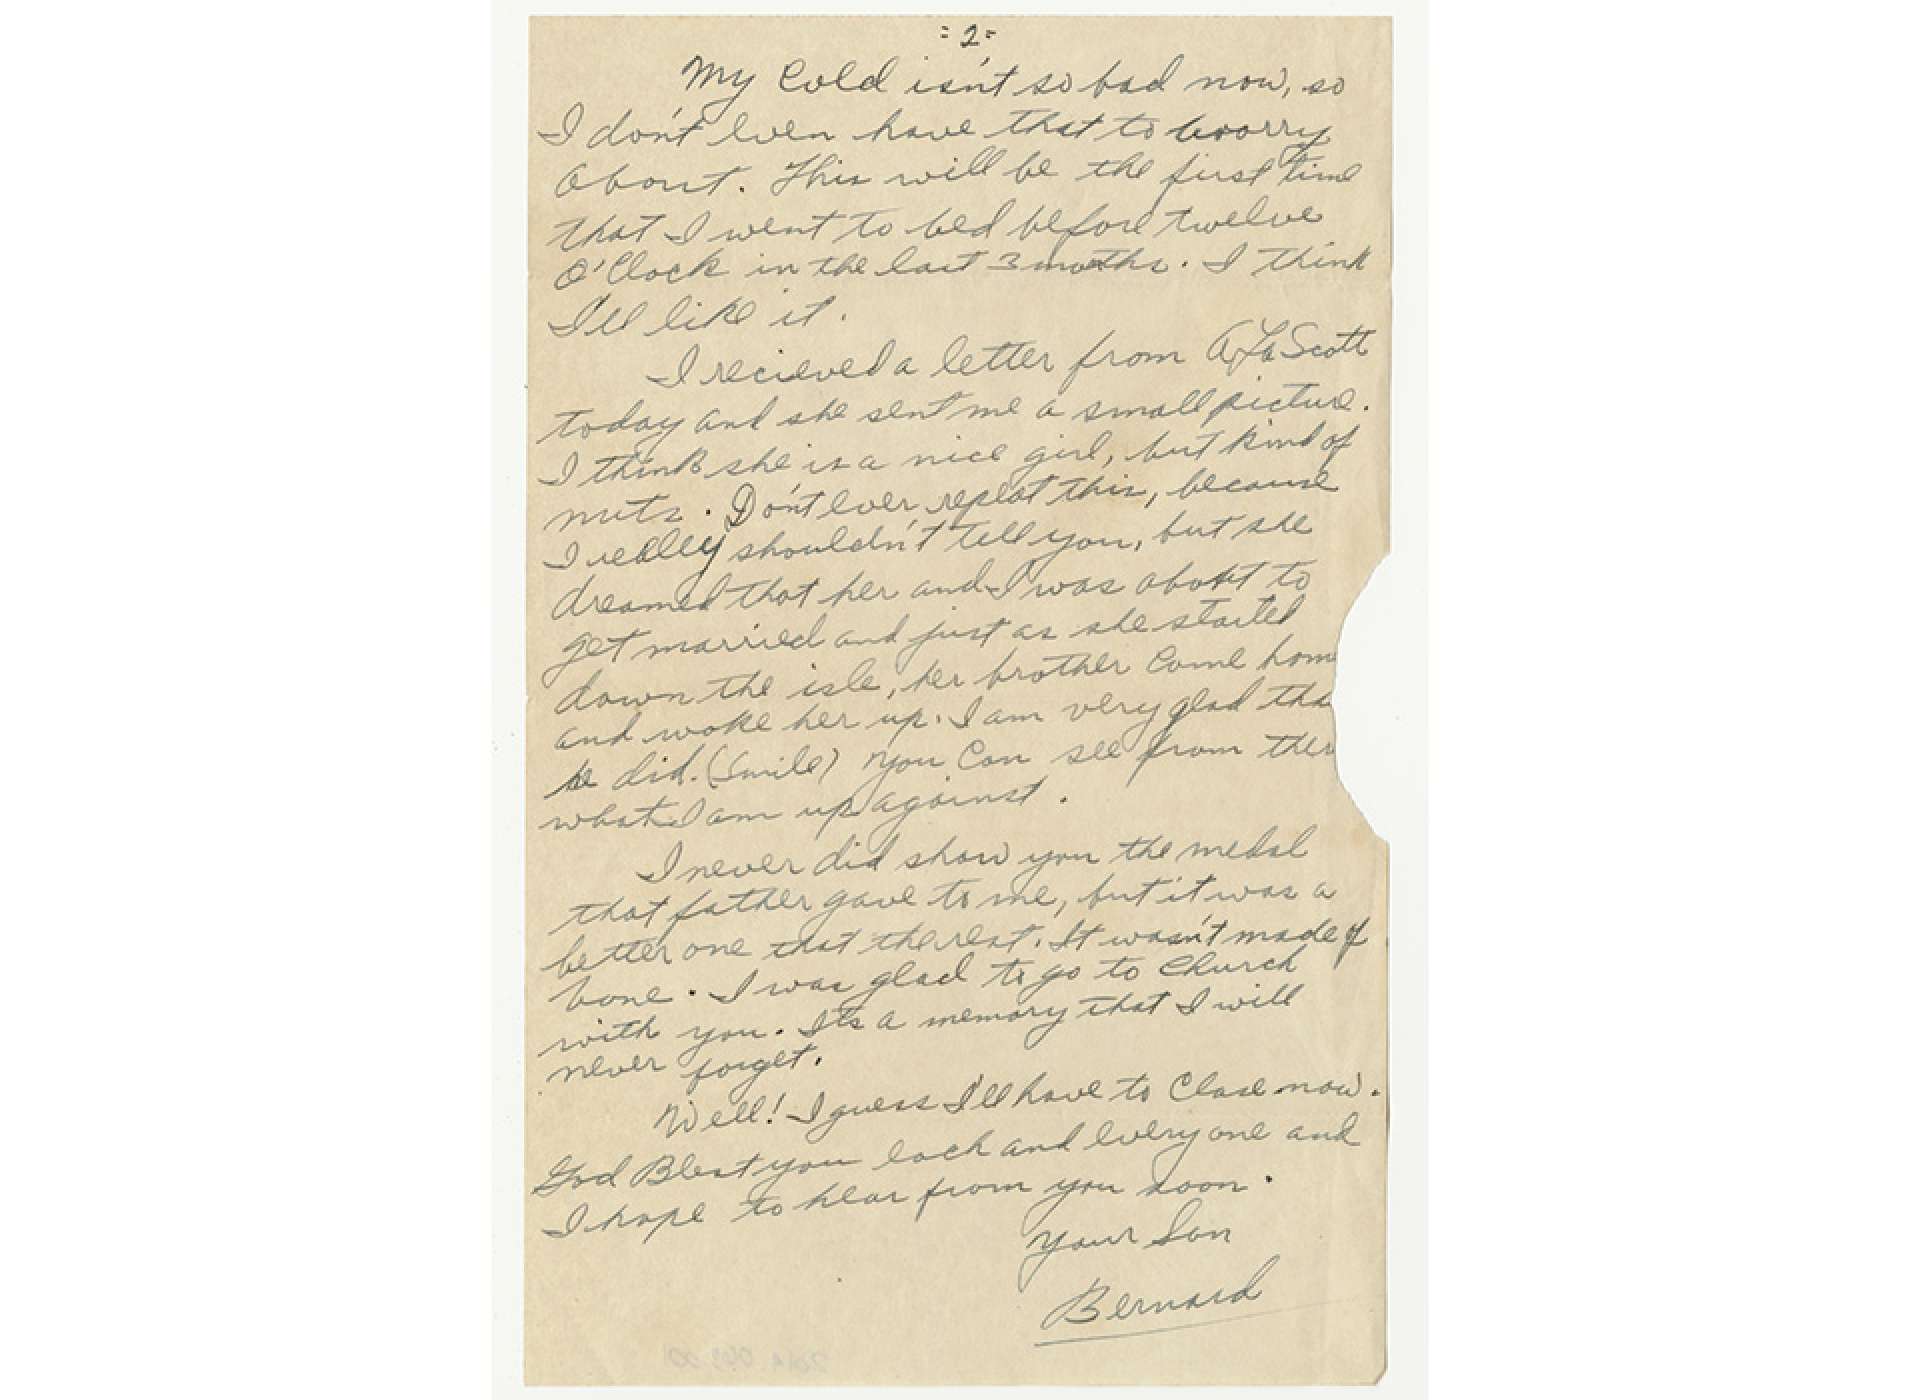 = 2 =
My Cold isn't so bad now, so
I don't even have that to worry
about. This will be the first time
that I went to bed before twelve
O'Clock in the last 3 months. I think
I'll like it.
I recieved a letter from Scott
today and she sent me a small picture.
I think she is a nice girl, but kind of
nuts. Don't ever repeat this, because
I really shouldn't tell you, but she
dreamed that her and I was about to
get married and just as she started
down the isle, her brother came home
and woke her up. I am very glad tha
he did. (Smile) You Can see from ther
what I am up against.
I never did show you the medal
that father gave to me, but it was a
better one that the rest. It wasn't made of
bone. I was glad to go to Church
with you. It's a memory that I will
never forget.
Well! I guess I'll have to Close now.
God Blest you each and everyone and
I hope to hear from you soon.
Your Son
Bernard